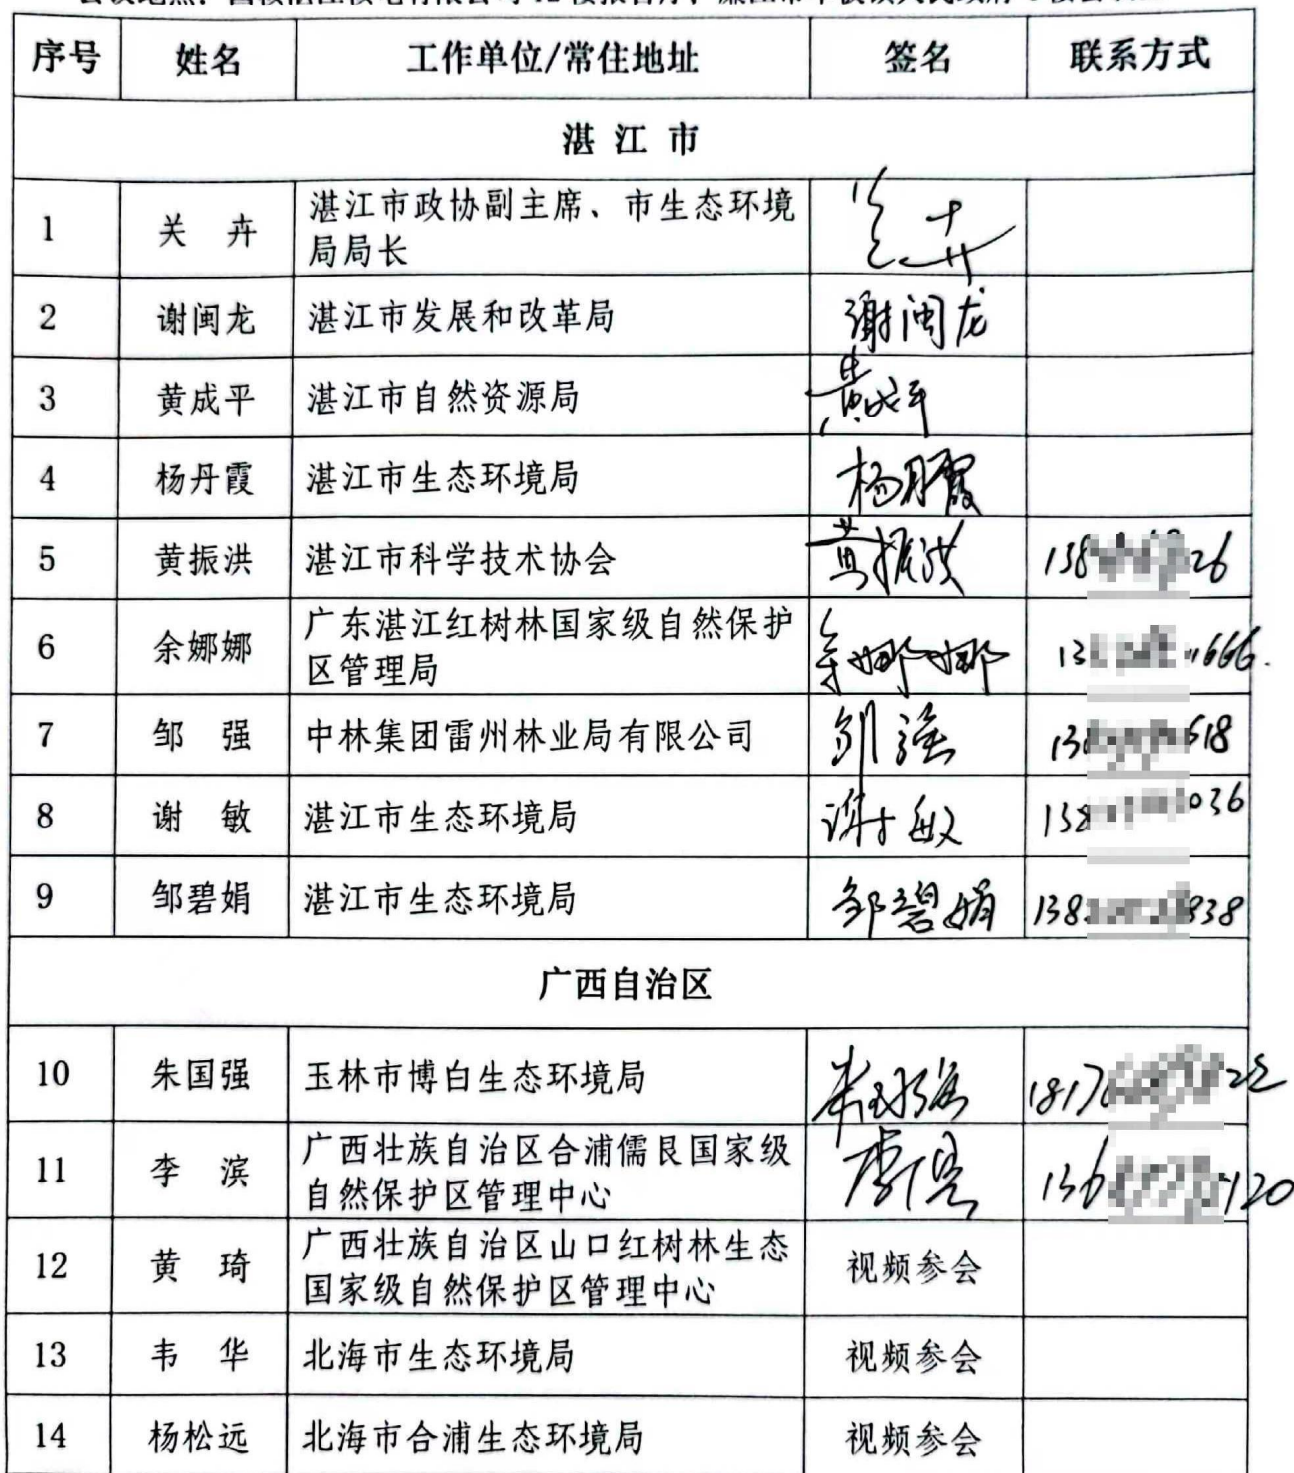 序号 姓名 工作单位/常住地址 签名 联系方式
湛江市
1 关卉 湛江市政协副主席、市生态环境 关卉
局局长
2 谢闽龙 湛江市发展和改革局 谢闽龙
3 黄成平 湛江市自然资源局 黄成平
4 杨丹霞 湛江市生态环境局 杨丹霞
5 黄振洪 湛江市科学技术协会 黄振洪 138 26
6 余娜娜 广东湛江红树林国家级自然保护 余娜娜 13 666.
区管理局
7 邹强 中林集团雷州林业局有限公司 邹强 138 618
8 谢敏 湛江市生态环境局 谢敏 138 036
9 邹碧娟 湛江市生态环境局 邹碧娟 138 838
广西自治区
10 朱国强 玉林市博白生态环境局 朱国强 1817 22
11 李滨 广西壮族自治区合浦儒艮国家级 李滨 136 120
自然保护区管理中心
12 黄琦 广西壮族自治区山口红树林生态 视频参会
国家级自然保护区管理中心
13 韦华 北海市生态环境局 视频参会
14 杨松远 北海市合浦生态环境局 视频参会